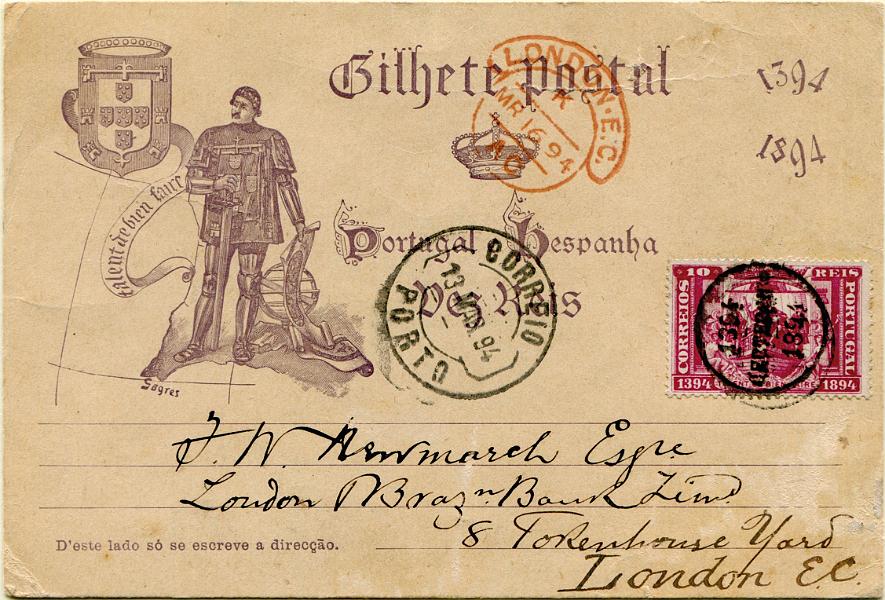 Bilhete postal
1394
1894
LONDON·E.C.
MR 16 94
talent de bien faire
Portugal Hespanha
Dez Reis
CORREIO
13 MAR 94
PORTO
CORREIOS 10 REIS PORTUGAL
1394 1894
1394
1894
Sagres
J. W. Newmarch Esqre
London & Brazn Bank Limd
8 Tokenhouse Yard
London E.C.
D'este lado só se escreve a direcção.